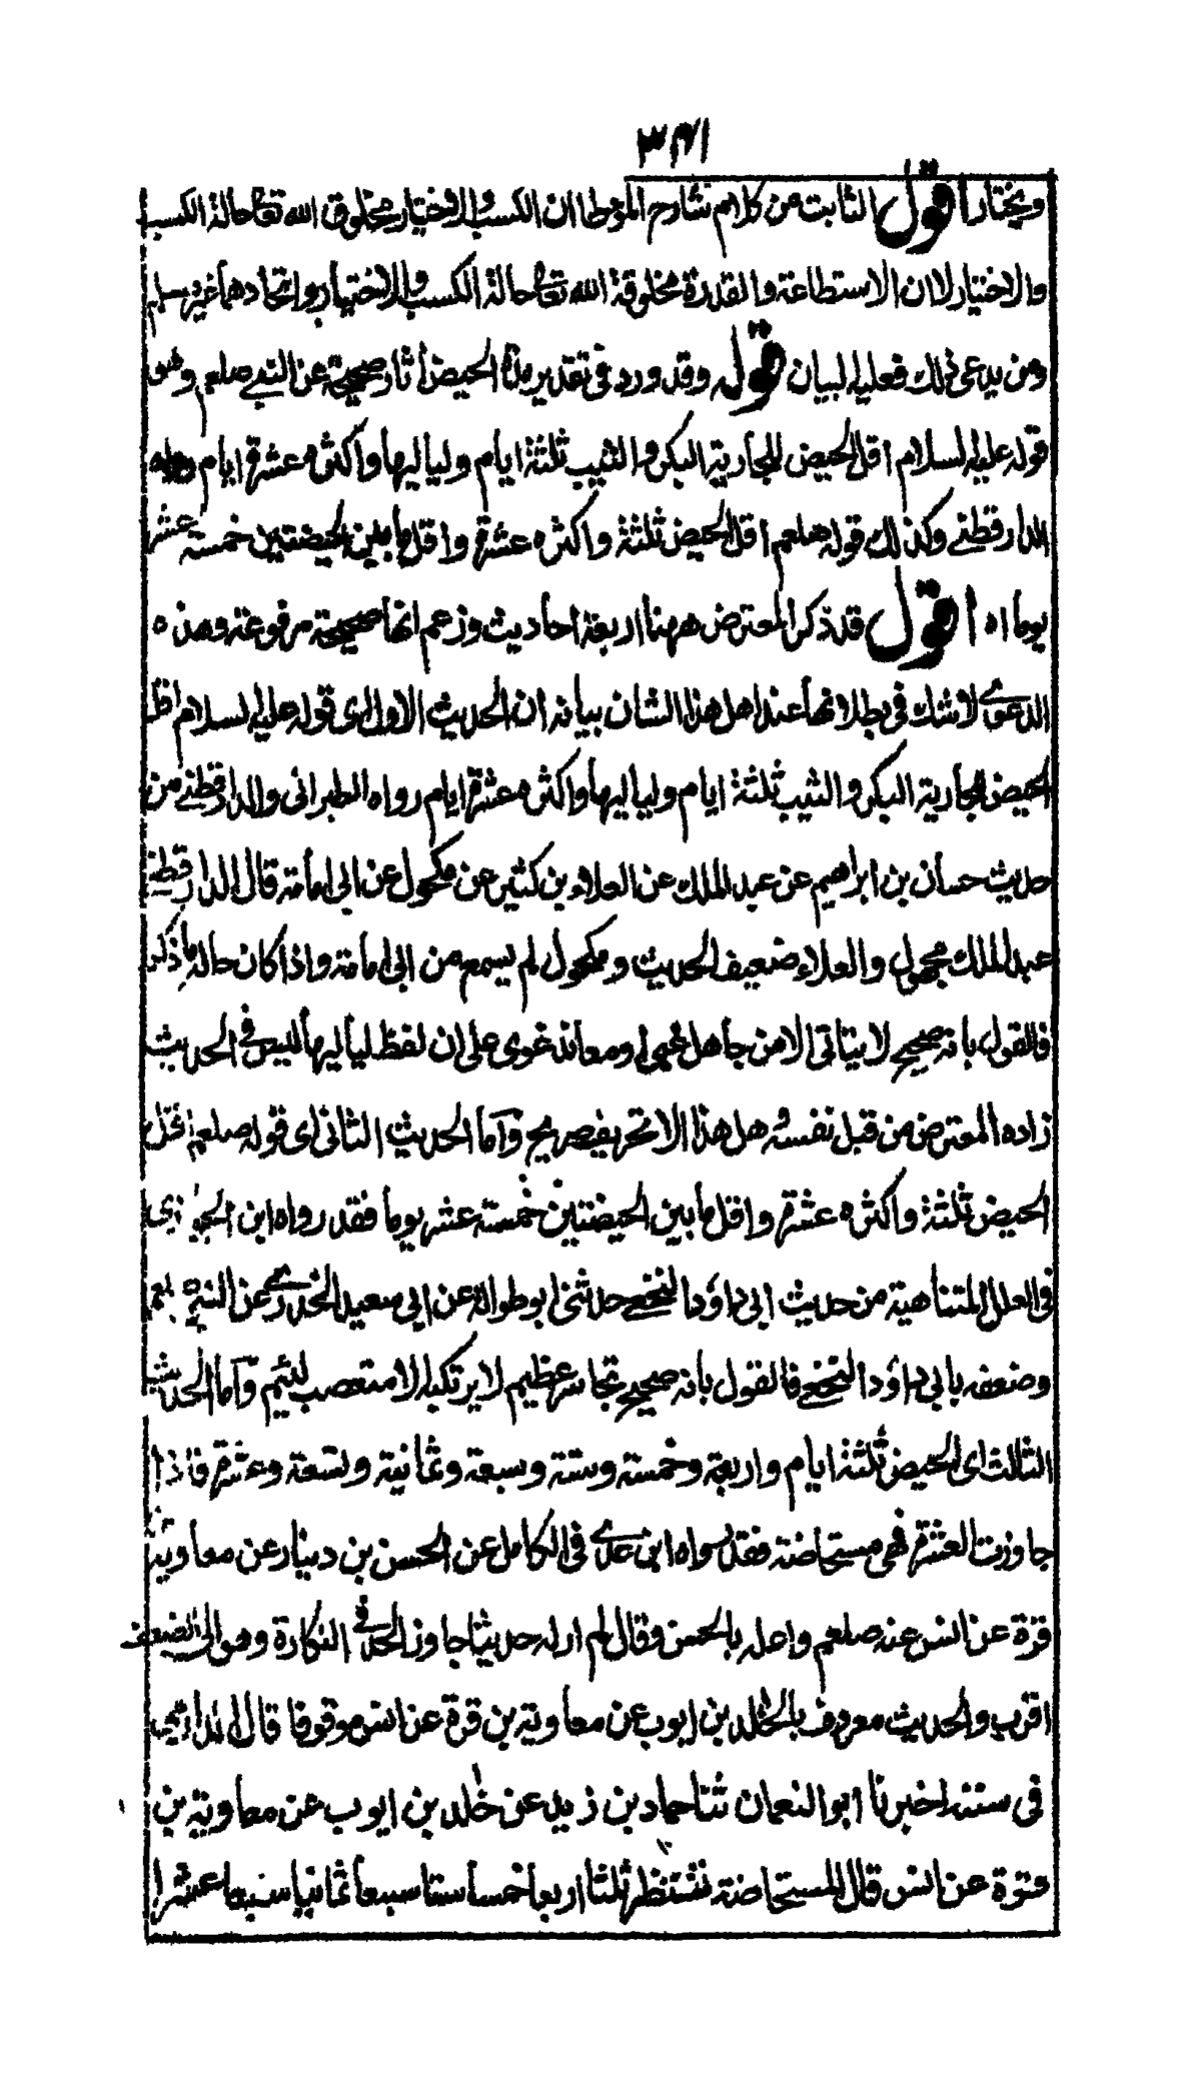 ٣٤١
ويختار اقول الثابت من كلام شارح الموطا ان الكسب والاختيار مخلوق الله تعالى حالة الكسب
والاختيار لا ان الاستطاعة والقدرة مخلوقة الله تعالى حالة الكسب والاختيار واتحادهما غير مسلم
ومن يدعى ذلك فعليه البيان قوله وقد ورد فى تقدير مدة الحيض اثار صحيحة عن النبي صلعم وهو
قوله عليه السلام اقل الحيض للجارية البكر والثيب ثلثة ايام ولياليها واكثره عشرة ايام رواه
الدارقطني وكذلك قوله صلعم اقل الحيض ثلثة واكثره عشرة واقل ما بين الحيضتين خمسة عشر
يوما اه اقول قد ذكر المعترض ههنا اربعة احاديث وزعم انها صحيحة مرفوعة وهذه
الدعوى لا شك فى بطلانها عند اهل هذا الشان بيانه ان الحديث الاول اى قوله عليه السلام اقل
الحيض للجارية البكر والثيب ثلثة ايام ولياليها واكثره عشرة ايام رواه الطبرانى والدارقطني من
حديث حسان بن ابراهيم عن عبد الملك عن العلاء بن كثير عن مكحول عن ابى امامة قال الدارقطني
عبد الملك مجهول والعلاء ضعيف الحديث ومكحول لم يسمع من ابى امامة واذا كان حاله ما ذكر
فالقول بانه صحيح لا يتاتى الا من جاهل غمى او معاند غوى على ان لفظ لياليها ليس فى الحديث
زاده المعترض من قبل نفسه هل هذا الا تحريف صريح وآما الحديث الثانى اى قوله صلعم اقل
الحيض ثلثة واكثره عشرة واقل ما بين الحيضتين خمسة عشر يوما فقد رواه ابن الجوزى
فى العلل المتناهية من حديث ابى داؤد النخعي حدثنى ابو طوالة عن ابى سعيد الخدري عن النبي صلعم
وضعفه بابى داؤد النخعي فالقول بانه صحيح تجاسر عظيم لا يرتكبه الا متعصب لئيم وآما الحديث
الثالث اى الحيض ثلثة ايام واربعة وخمسة وستة وسبعة وثمانية وتسعة وعشرة فاذا
جاوزت العشرة فهى مستحاضة فقد رواه ابن عدي فى الكامل عن الحسن بن دينار عن معاوية بن
قرة عن انس عنه صلعم واعله بالحسن وقال لم ار له حديثا جاوز الحد فى النكارة وهو الى الضعف
اقرب والحديث معروف بالخلد بن ايوب عن معاوية بن قرة عن انس موقوفا قال الدارمى
فى سننه اخبرنا ابو النعمان ثنا حماد بن زيد عن خلد بن ايوب عن معاوية بن
قرة عن انس قال المستحاضة تنتظر ثلثا اربعا خمسا ستا سبعا ثمانيا تسعا عشرا